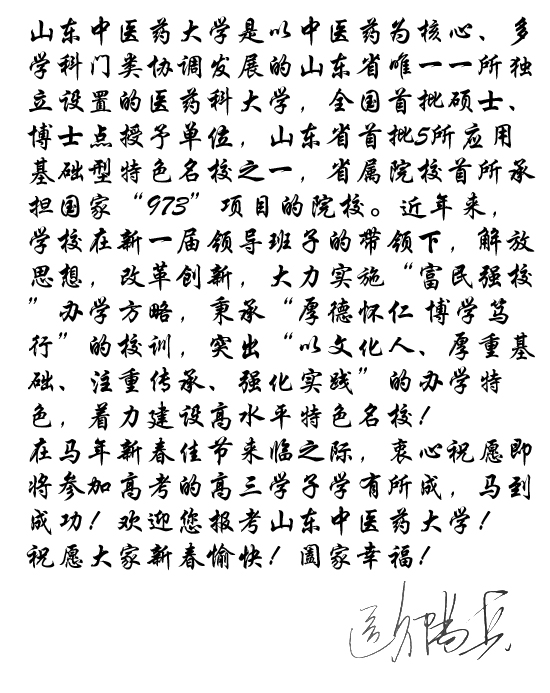 山东中医药大学是以中医药为核心、多
学科门类协调发展的山东省唯一一所独
立设置的医药科大学，全国首批硕士、
博士点授予单位，山东省首批5所应用
基础型特色名校之一，省属院校首所承
担国家“973”项目的院校。近年来，
学校在新一届领导班子的带领下，解放
思想，改革创新，大力实施“富民强校
”办学方略，秉承“厚德怀仁 博学笃
行”的校训，突出“以文化人、厚重基
础、注重传承、强化实践”的办学特
色，着力建设高水平特色名校！
在马年新春佳节来临之际，衷心祝愿即
将参加高考的高三学子学有所成，马到
成功！欢迎您报考山东中医药大学！
祝愿大家新春愉快！阖家幸福！